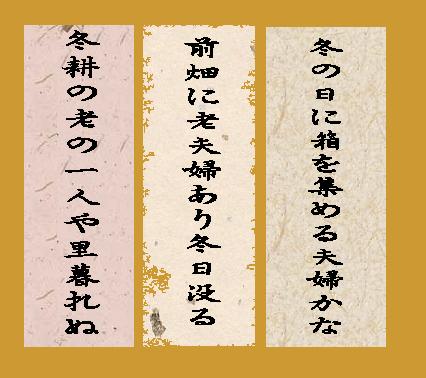 冬の日に箱を集める夫婦かな
前畑に老夫婦あり冬日没る
冬耕の老の一人や里暮れぬ